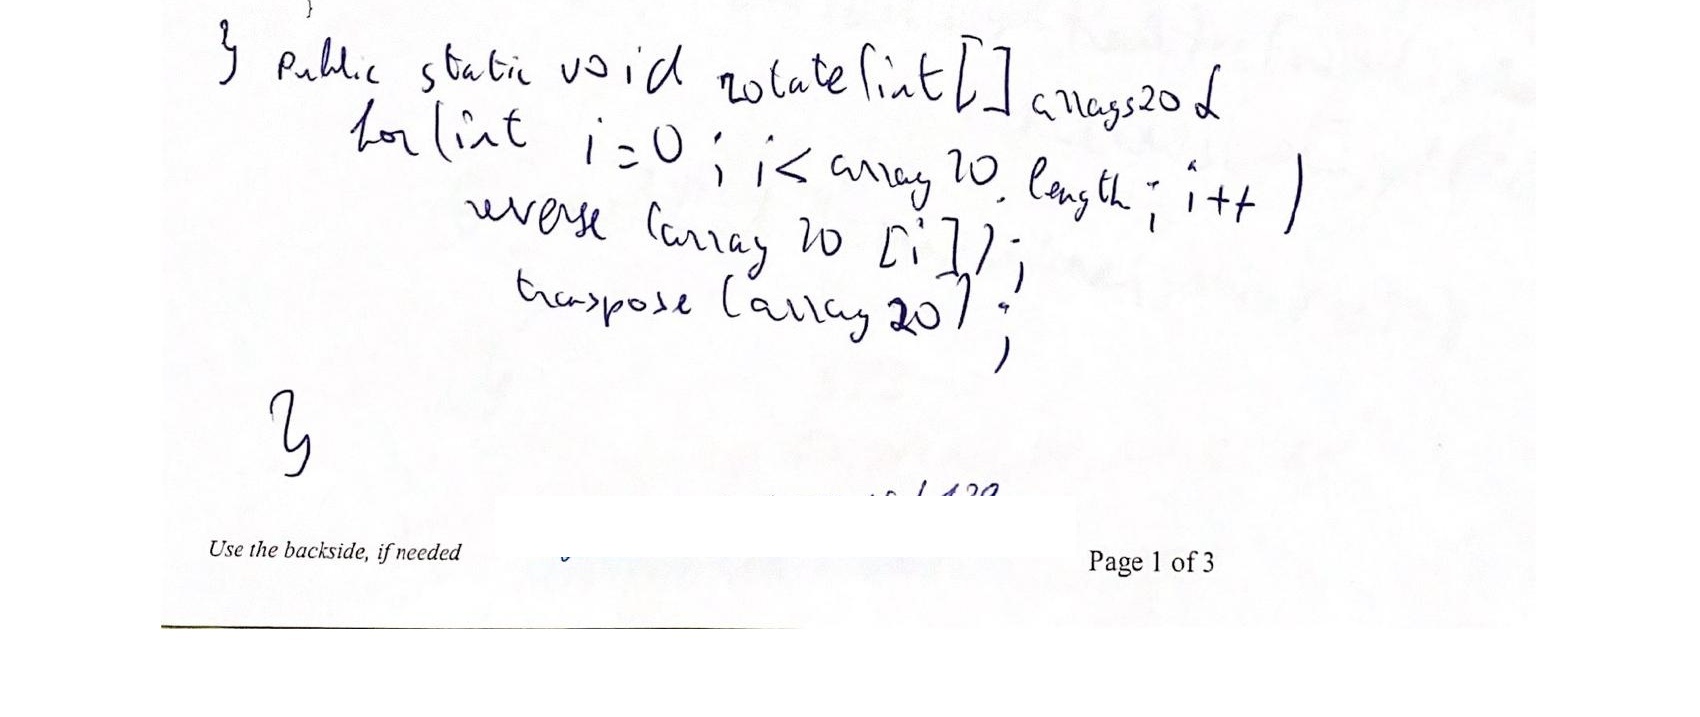 }
} Public static void rotate(int[] arrays20 {
for (int i=0 ; i< array 20. length ; i++ )
reverse (array 20 [i]);
transpose (array 20) ;
}
Use the backside, if needed
Page 1 of 3